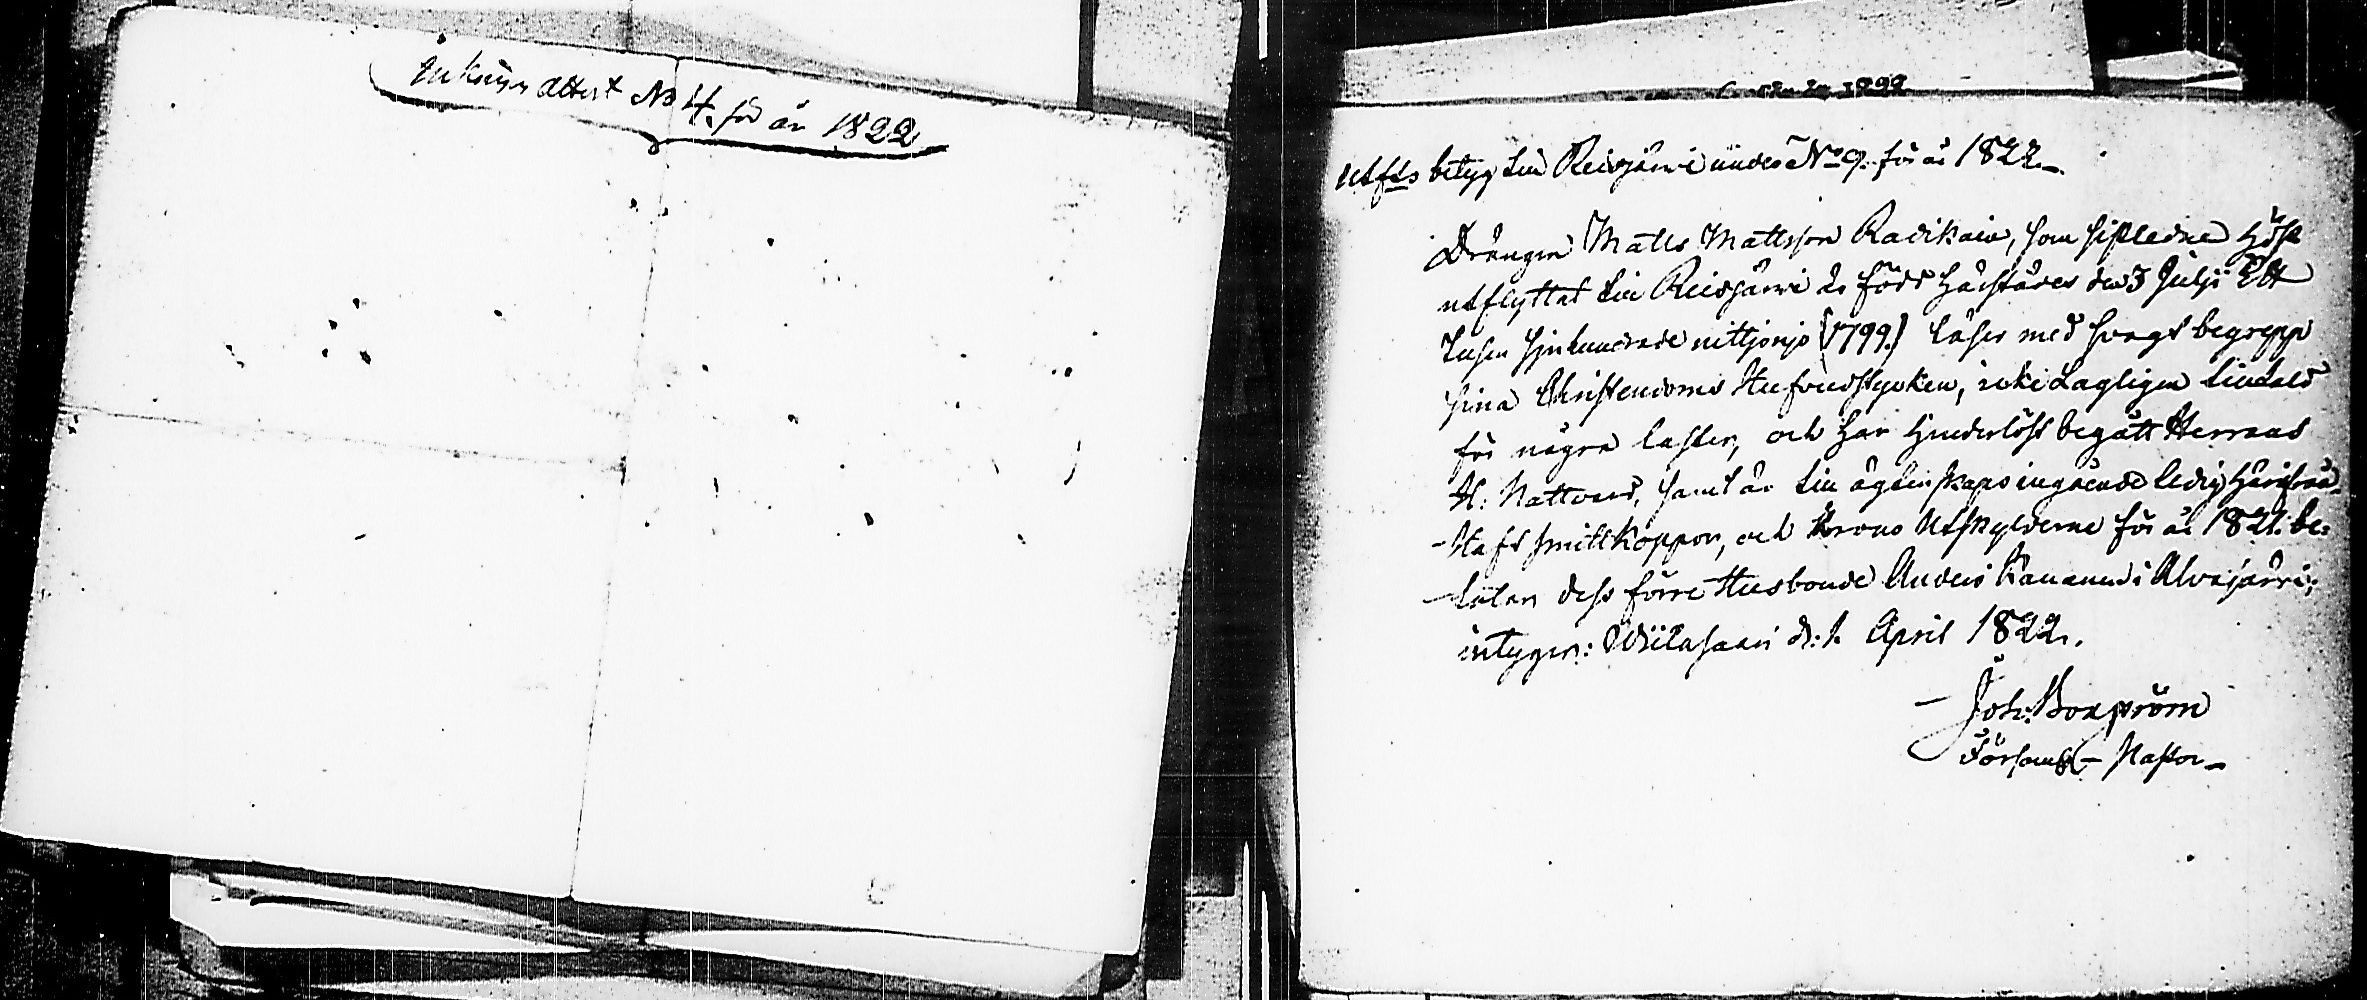 Inkomm attest No 4. för år 1822
Utfts betyg till Reisjärvi under No 9. för år 1822.
Drängen Matts Mattsson Radikain, som sistledne Höst
utflyttat till Reisjärvi är född härstädes den 3 Julji Ett
tusen sjuhundrade nittjonjo (1799.) läser med svagt begrepp
sina Christendoms Hufvudstycken, icke Lagligen lialald
för några laster, och har hinderlöst begått Herrans
H: Nattvard, samt är till ägtenskaps ingående ledig härifrån
Haft smittkoppor, och Krono Utskylderne för år 1821. be-
talar dess förre Husbonde Anders Kananen i Alvajärvi;
intygar: Wiitasaari d: 1. April 1822.
Joh: Boxström
Församl- Pastor